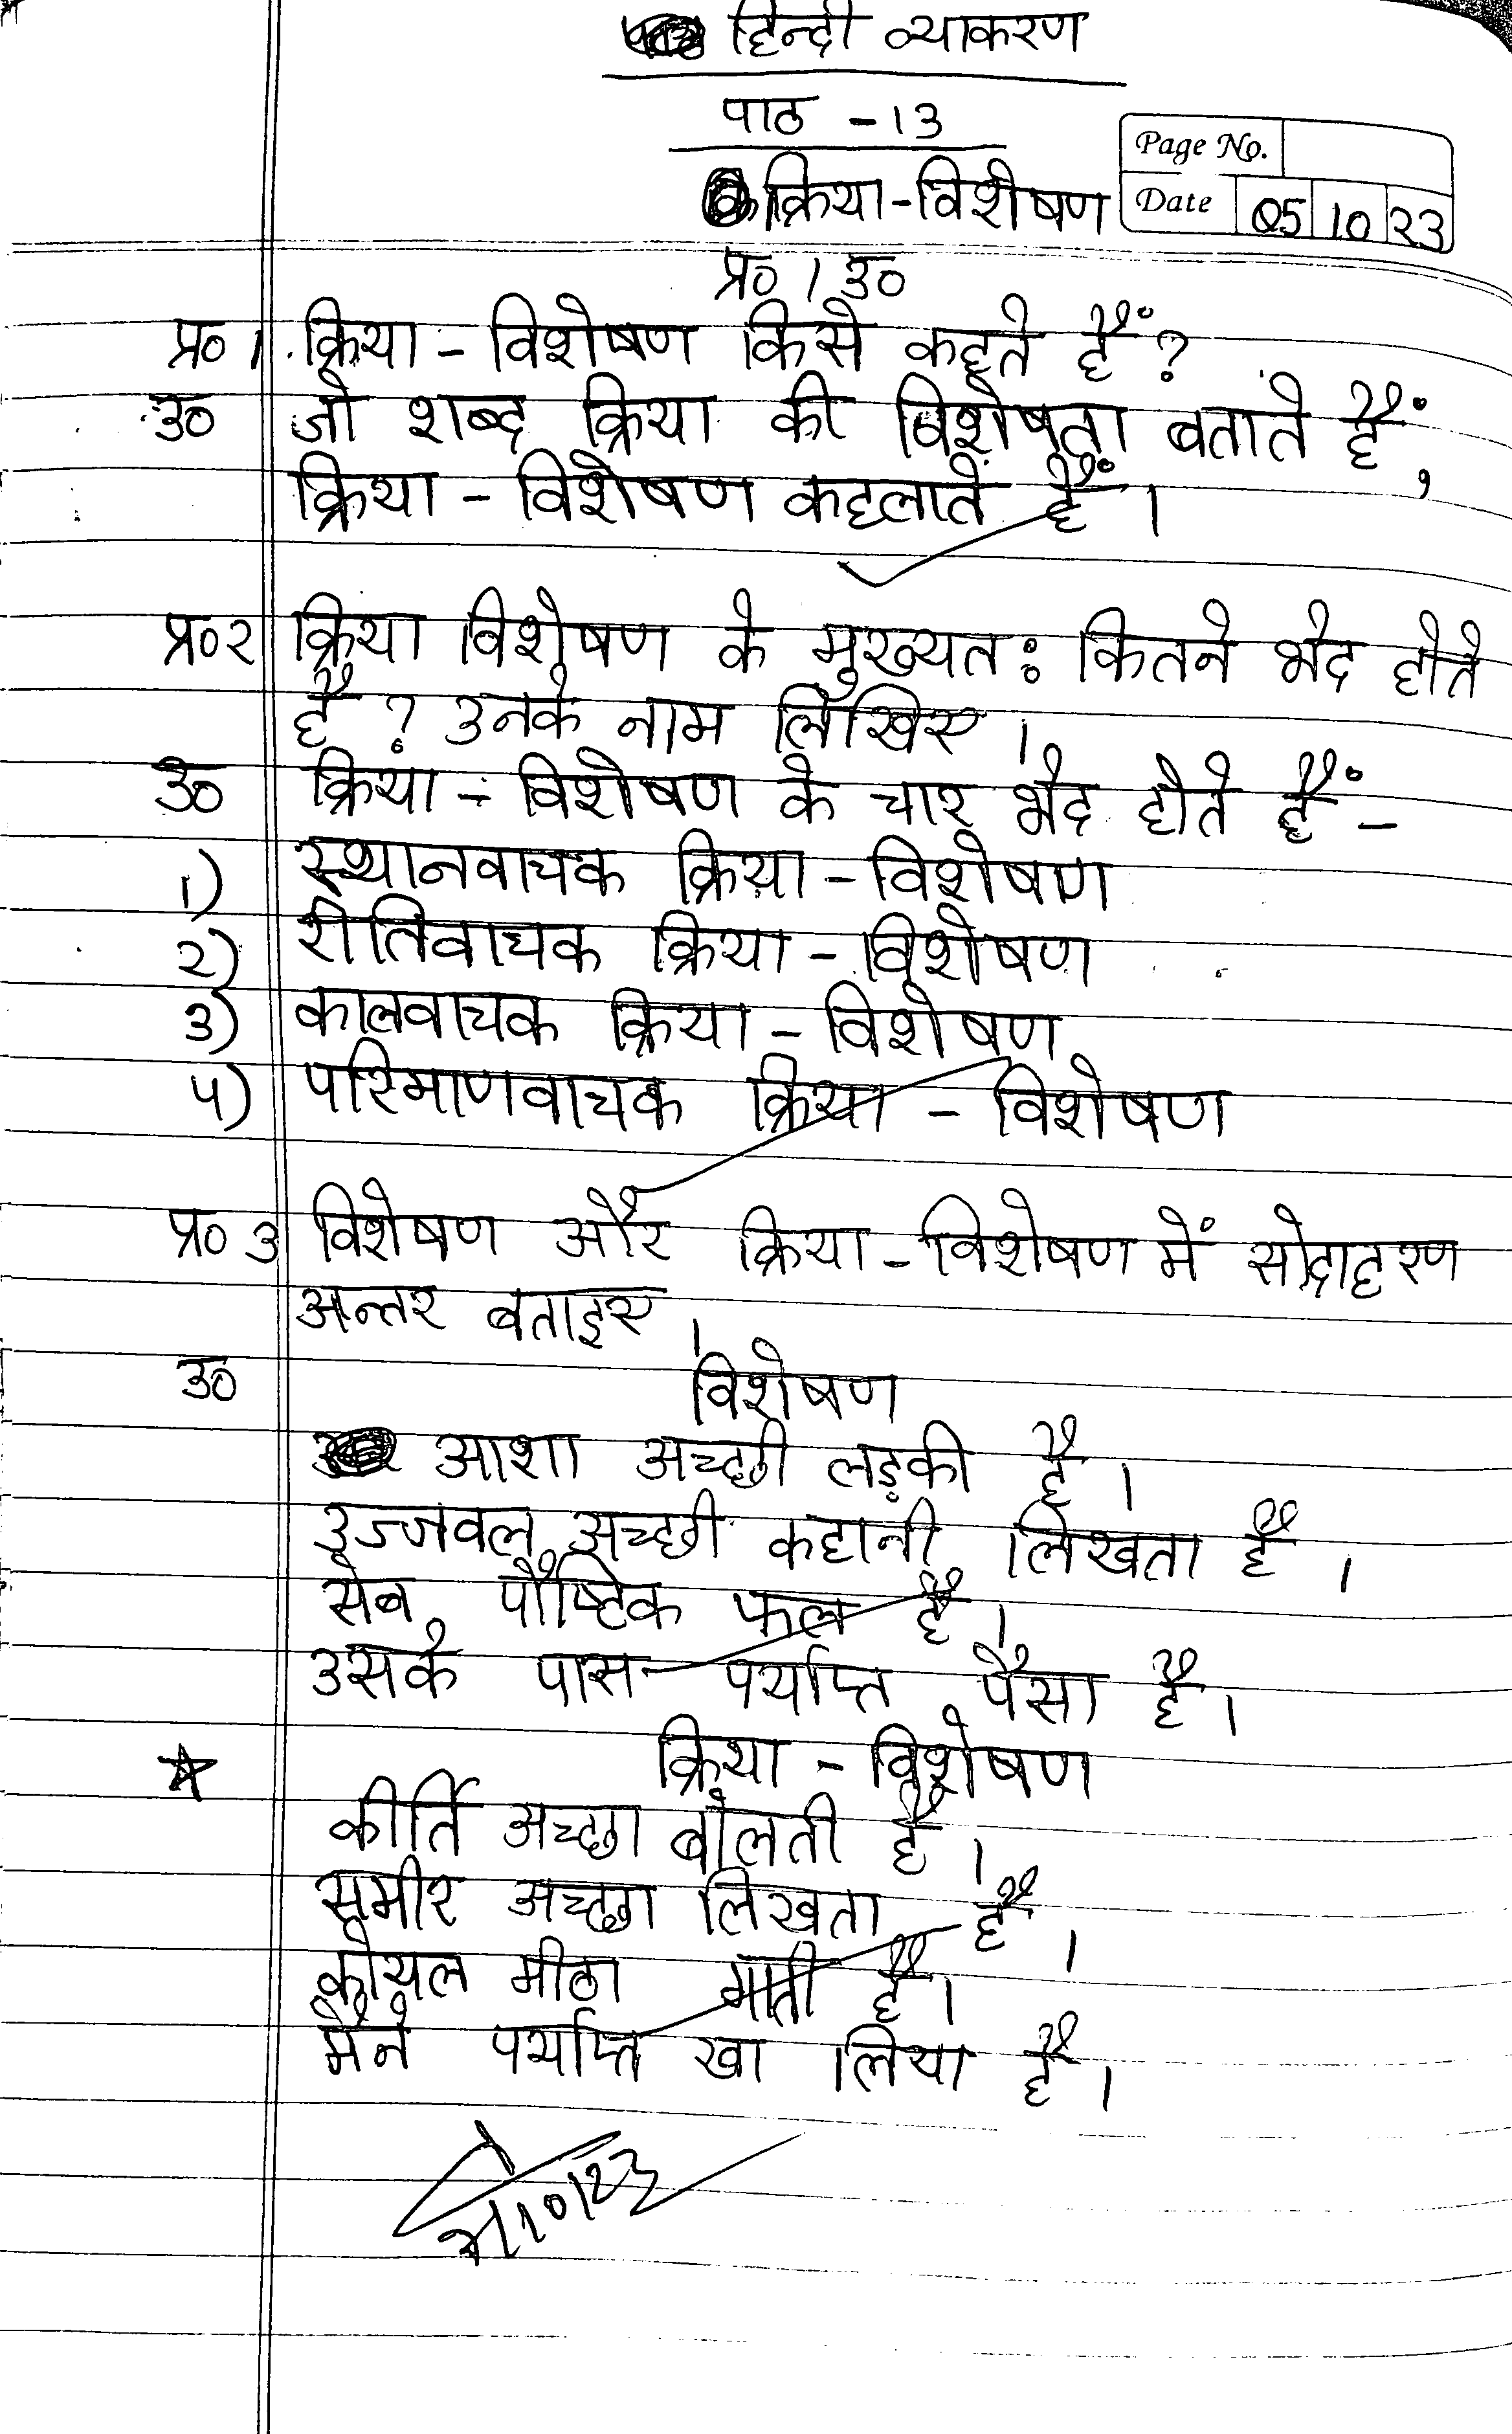 हिन्दी व्याकरण
पाठ - 13
Page No.
क्रिया - विशेषण
Date 05 10 23
प्र० / उ०
प्र० 1. क्रिया - विशेषण किसे कहते हैं ?
उ० जो शब्द क्रिया की विशेषता बताते हैं,
क्रिया - विशेषण कहलाते हैं ।
प्र० २ क्रिया विशेषण के मुख्यत: कितने भेद होते
है ? उनके नाम लिखिए ।
उ० क्रिया - विशेषण के चार भेद होते हैं -
1) स्थानवाचक क्रिया - विशेषण
२) रीतिवाचक क्रिया - विशेषण
३) कालवाचक क्रिया - विशेषण
४) परिमाणवाचक क्रिया - विशेषण
प्र० ३ विशेषण और क्रिया - विशेषण में सोदाहरण
अन्तर बताइए ।
उ० विशेषण
आशा अच्छी लड़की है ।
उज्जवल अच्छी कहानी लिखता है ।
सेब पौष्टिक फल है ।
उसके पास पर्याप्त पैसा है ।
☆ क्रिया - विशेषण
कीर्ति अच्छा बोलती है ।
समीर अच्छा लिखता है ।
कोयल मीठा गाती है ।
मैने पर्याप्त खा लिया है ।